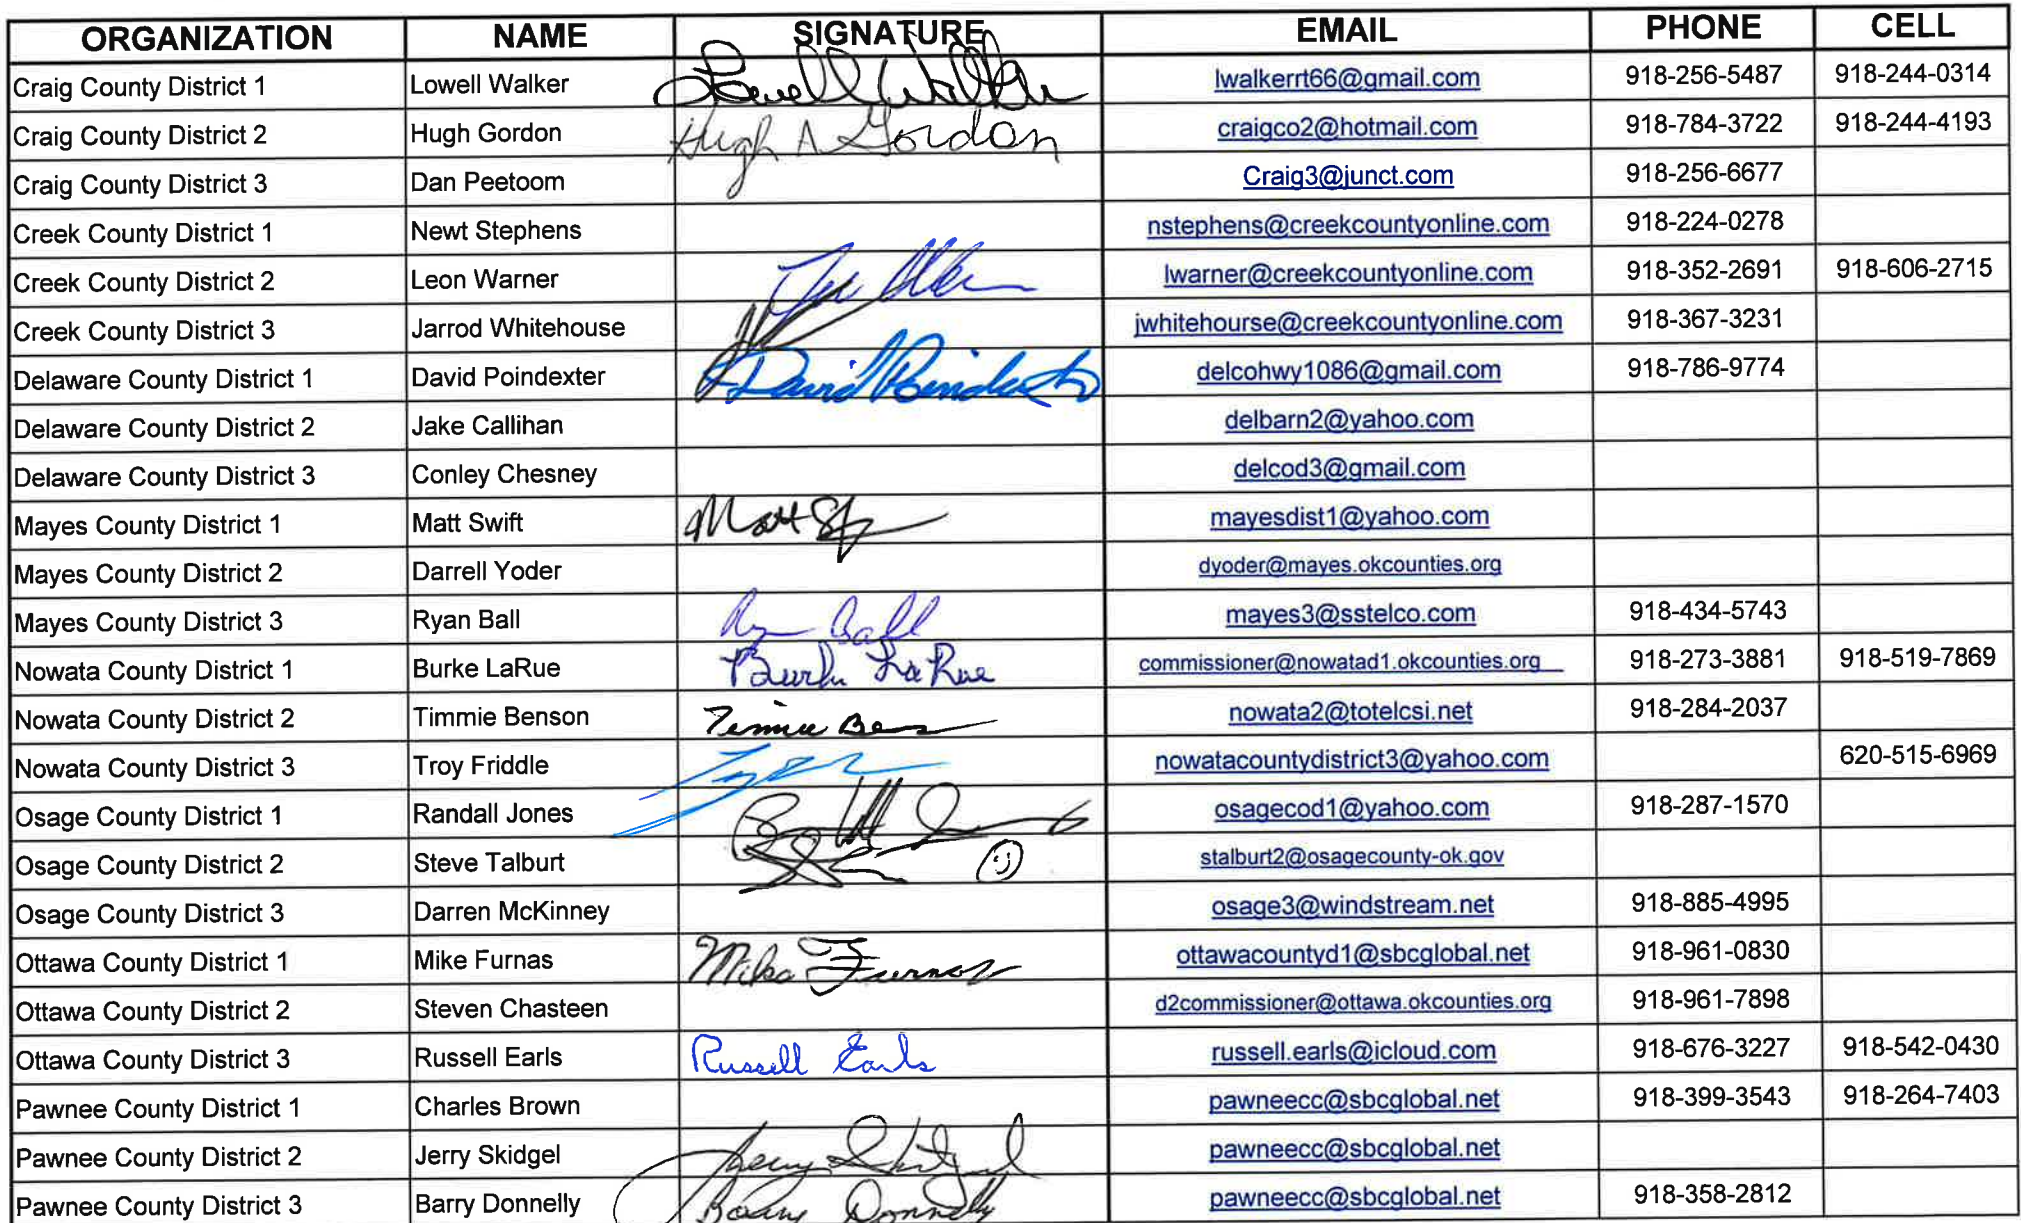 ORGANIZATION NAME SIGNATURE EMAIL PHONE CELL
Craig County District 1 Lowell Walker Lowell Walker lwalkerrt66@gmail.com 918-256-5487 918-244-0314
Craig County District 2 Hugh Gordon Hugh A Gordon craigco2@hotmail.com 918-784-3722 918-244-4193
Craig County District 3 Dan Peetoom Craig3@junct.com 918-256-6677
Creek County District 1 Newt Stephens nstephens@creekcountyonline.com 918-224-0278
Creek County District 2 Leon Warner lwarner@creekcountyonline.com 918-352-2691 918-606-2715
Creek County District 3 Jarrod Whitehouse jwhitehourse@creekcountyonline.com 918-367-3231
Delaware County District 1 David Poindexter David Poindexter delcohwy1086@gmail.com 918-786-9774
Delaware County District 2 Jake Callihan delbarn2@yahoo.com
Delaware County District 3 Conley Chesney delcod3@gmail.com
Mayes County District 1 Matt Swift Matt mayesdist1@yahoo.com
Mayes County District 2 Darrell Yoder dyoder@mayes.okcounties.org
Mayes County District 3 Ryan Ball Ryan Ball mayes3@sstelco.com 918-434-5743
Nowata County District 1 Burke LaRue Burke LaRue commissioner@nowatad1.okcounties.org 918-273-3881 918-519-7869
Nowata County District 2 Timmie Benson Timmie nowata2@totelcsi.net 918-284-2037
Nowata County District 3 Troy Friddle nowatacountydistrict3@yahoo.com 620-515-6969
Osage County District 1 Randall Jones osagecod1@yahoo.com 918-287-1570
Osage County District 2 Steve Talburt stalburt2@osagecounty-ok.gov
Osage County District 3 Darren McKinney osage3@windstream.net 918-885-4995
Ottawa County District 1 Mike Furnas Mike Furnas ottawacountyd1@sbcglobal.net 918-961-0830
Ottawa County District 2 Steven Chasteen d2commissioner@ottawa.okcounties.org 918-961-7898
Ottawa County District 3 Russell Earls Russell Earls russell.earls@icloud.com 918-676-3227 918-542-0430
Pawnee County District 1 Charles Brown pawneecc@sbcglobal.net 918-399-3543 918-264-7403
Pawnee County District 2 Jerry Skidgel Jerry Skidgel pawneecc@sbcglobal.net
Pawnee County District 3 Barry Donnelly Barry Donnelly pawneecc@sbcglobal.net 918-358-2812